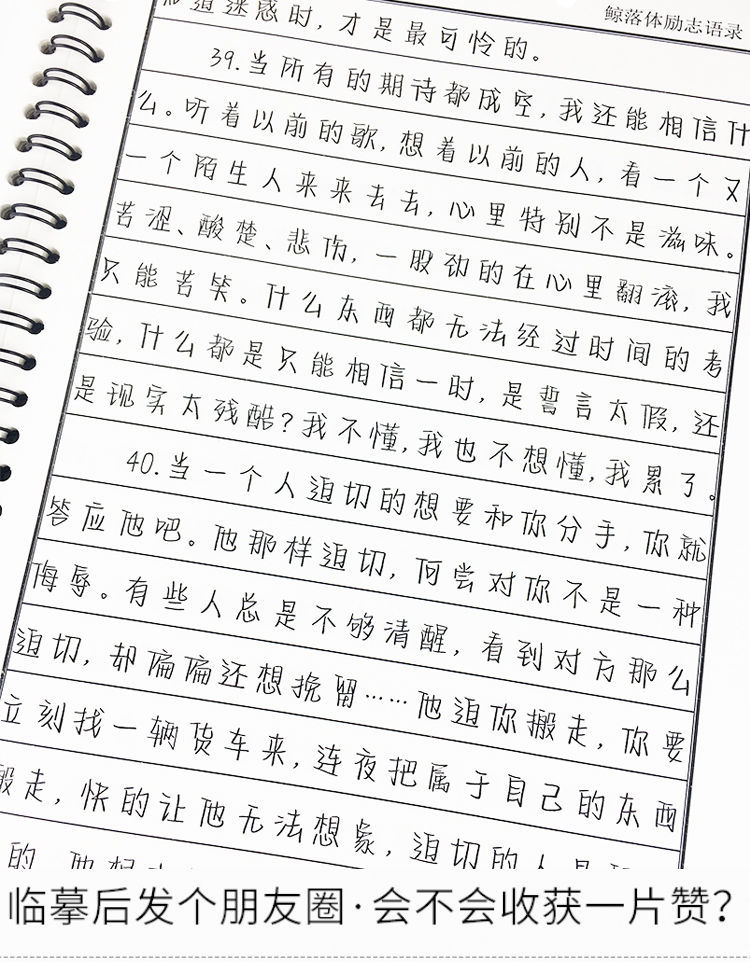 鲸落体励志语录
知道迷惑时,才是最可怜的。
39.当所有的期待都成空,我还能相信什
么。听着以前的歌,想着以前的人,看一个又
一个陌生人来来去去,心里特别不是滋味。
苦涩、酸楚、悲伤,一股劲的在心里翻滚,我
只能苦笑。什么东西都无法经过时间的考
验,什么都是只能相信一时,是誓言太假,还
是现实太残酷?我不懂,我也不想懂,我累了。
40.当一个人迫切的想要和你分手,你就
答应他吧。他那样迫切,何尝对你不是一种
侮辱。有些人总是不够清醒,看到对方那么
迫切,却偏偏还想挽留……他迫你搬走,你要
立刻找一辆货车来,连夜把属于自己的东西
般走,快的让他无法想象,迫切的人是
的
临摹后发个朋友圈·会不会收获一片赞?